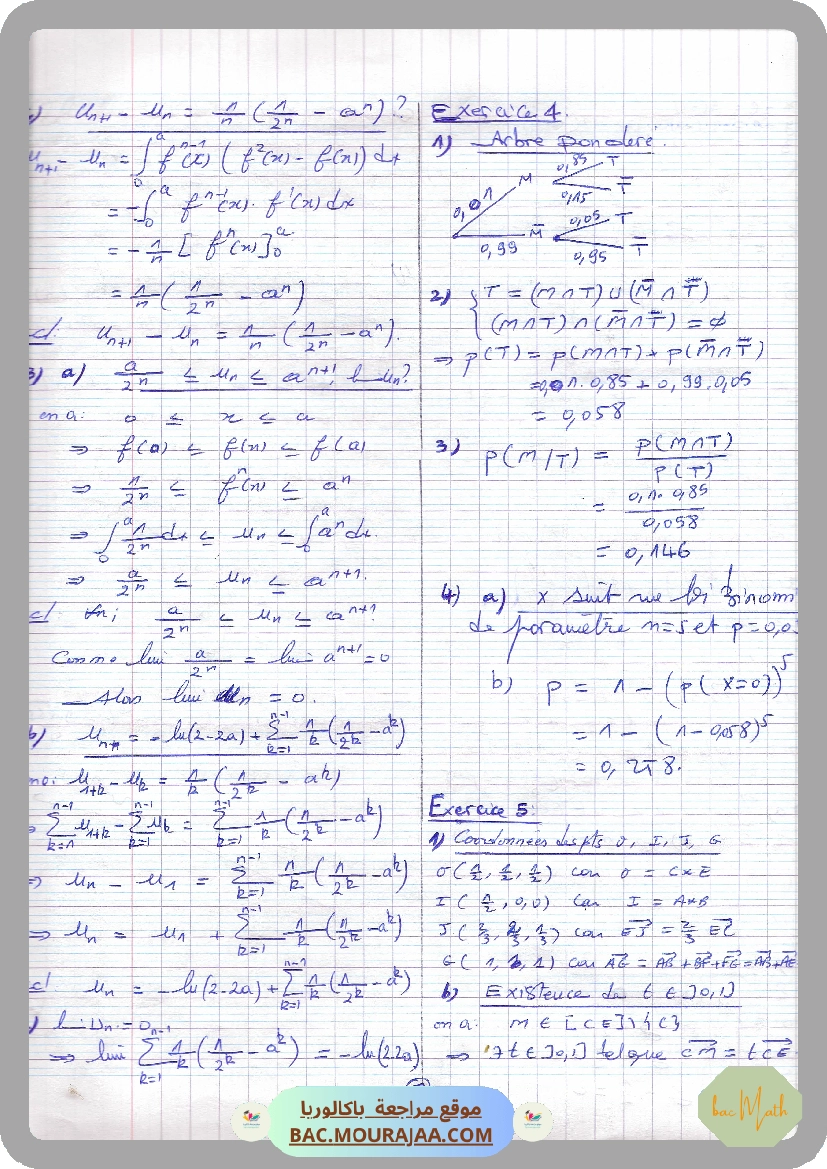 c) u_{n+1} - u_n = 1/n (1/2^n - a^n) ?
u_{n+1} - u_n = ∫_0^a f^{n-1}(x) (f²(x) - f(x)) dx
= -∫_0^a f^{n-1}(x) · f'(x) dx
= - 1/n [ f^n(x) ]_0^a
= 1/n ( 1/2^n - a^n )
cl: u_{n+1} - u_n = 1/n ( 1/2^n - a^n ).
3) a) a/2^n ≤ u_n ≤ a^{n+1}, lim u_n ?
on a: 0 ≤ x ≤ a
⇒ f(0) ≤ f(x) ≤ f(a)
⇒ 1/2^n ≤ f^n(x) ≤ a^n
⇒ ∫_0^a 1/2^n dx ≤ u_n ≤ ∫_0^a a^n dx.
⇒ a/2^n ≤ u_n ≤ a^{n+1}.
cl ∀n; a/2^n ≤ u_n ≤ a^{n+1}
Comme lim a/2^n = lim a^{n+1} = 0
Alors lim u_n = 0.
b) u_n = -ln(2-2a) + ∑_{k=1}^{n-1} 1/k (1/2^k - a^k)
u_{1+k} - u_k = 1/k ( 1/2^k - a^k )
⇒ ∑_{k=1}^{n-1} u_{1+k} - ∑_{k=1}^{n-1} u_k = ∑_{k=1}^{n-1} 1/k ( 1/2^k - a^k )
⇒ u_n - u_1 = ∑_{k=1}^{n-1} 1/k ( 1/2^k - a^k )
⇒ u_n = u_1 + ∑_{k=1}^{n-1} 1/k ( 1/2^k - a^k )
cl u_n = -ln(2-2a) + ∑_{k=1}^{n-1} 1/k ( 1/2^k - a^k )
) lim u_n = 0
⇒ lim ∑_{k=1}^{n-1} 1/k ( 1/2^k - a^k ) = -ln(2-2a)
Exercice 4.
1) Arbre pondéré.
0,01 M 0,85 T
0,15 T̄
0,99 M̄ 0,05 T
0,95 T̄
2) { T = (M∩T) ∪ (M̄∩T)
(M∩T) ∩ (M̄∩T) = ∅
⇒ p(T) = p(M∩T) + p(M̄∩T)
= 0,01 · 0,85 + 0,99 · 0,05
= 0,058
3) p(M/T) = p(M∩T) / p(T)
= 0,1 · 0,85 / 0,058
= 0,146
4) a) X suit une loi binom
de paramètre n=5 et p=0,0
b) p = 1 - (p(X=0))^5
= 1 - (1-0,058)^5
= 0,258.
Exercice 5:
1) Coordonnées des pts O, I, J, G
O(1/2, 1/2, 1/2) car O = C*E
I(1/2, 0, 0) car I = A*B
J(2/3, 2/3, 1/3) car EJ = 2/3 EC
G(1, 1, 1) car AG = AB + BF + FG = AB + AE
b) Existence de t ∈ ]0,1]
on a: M ∈ [CE] \ {C}
⇒ ∃ t ∈ ]0,1] tel que CM = t CE
موقع مراجعة باكالوريا
BAC.MOURAJAA.COM
bac Math